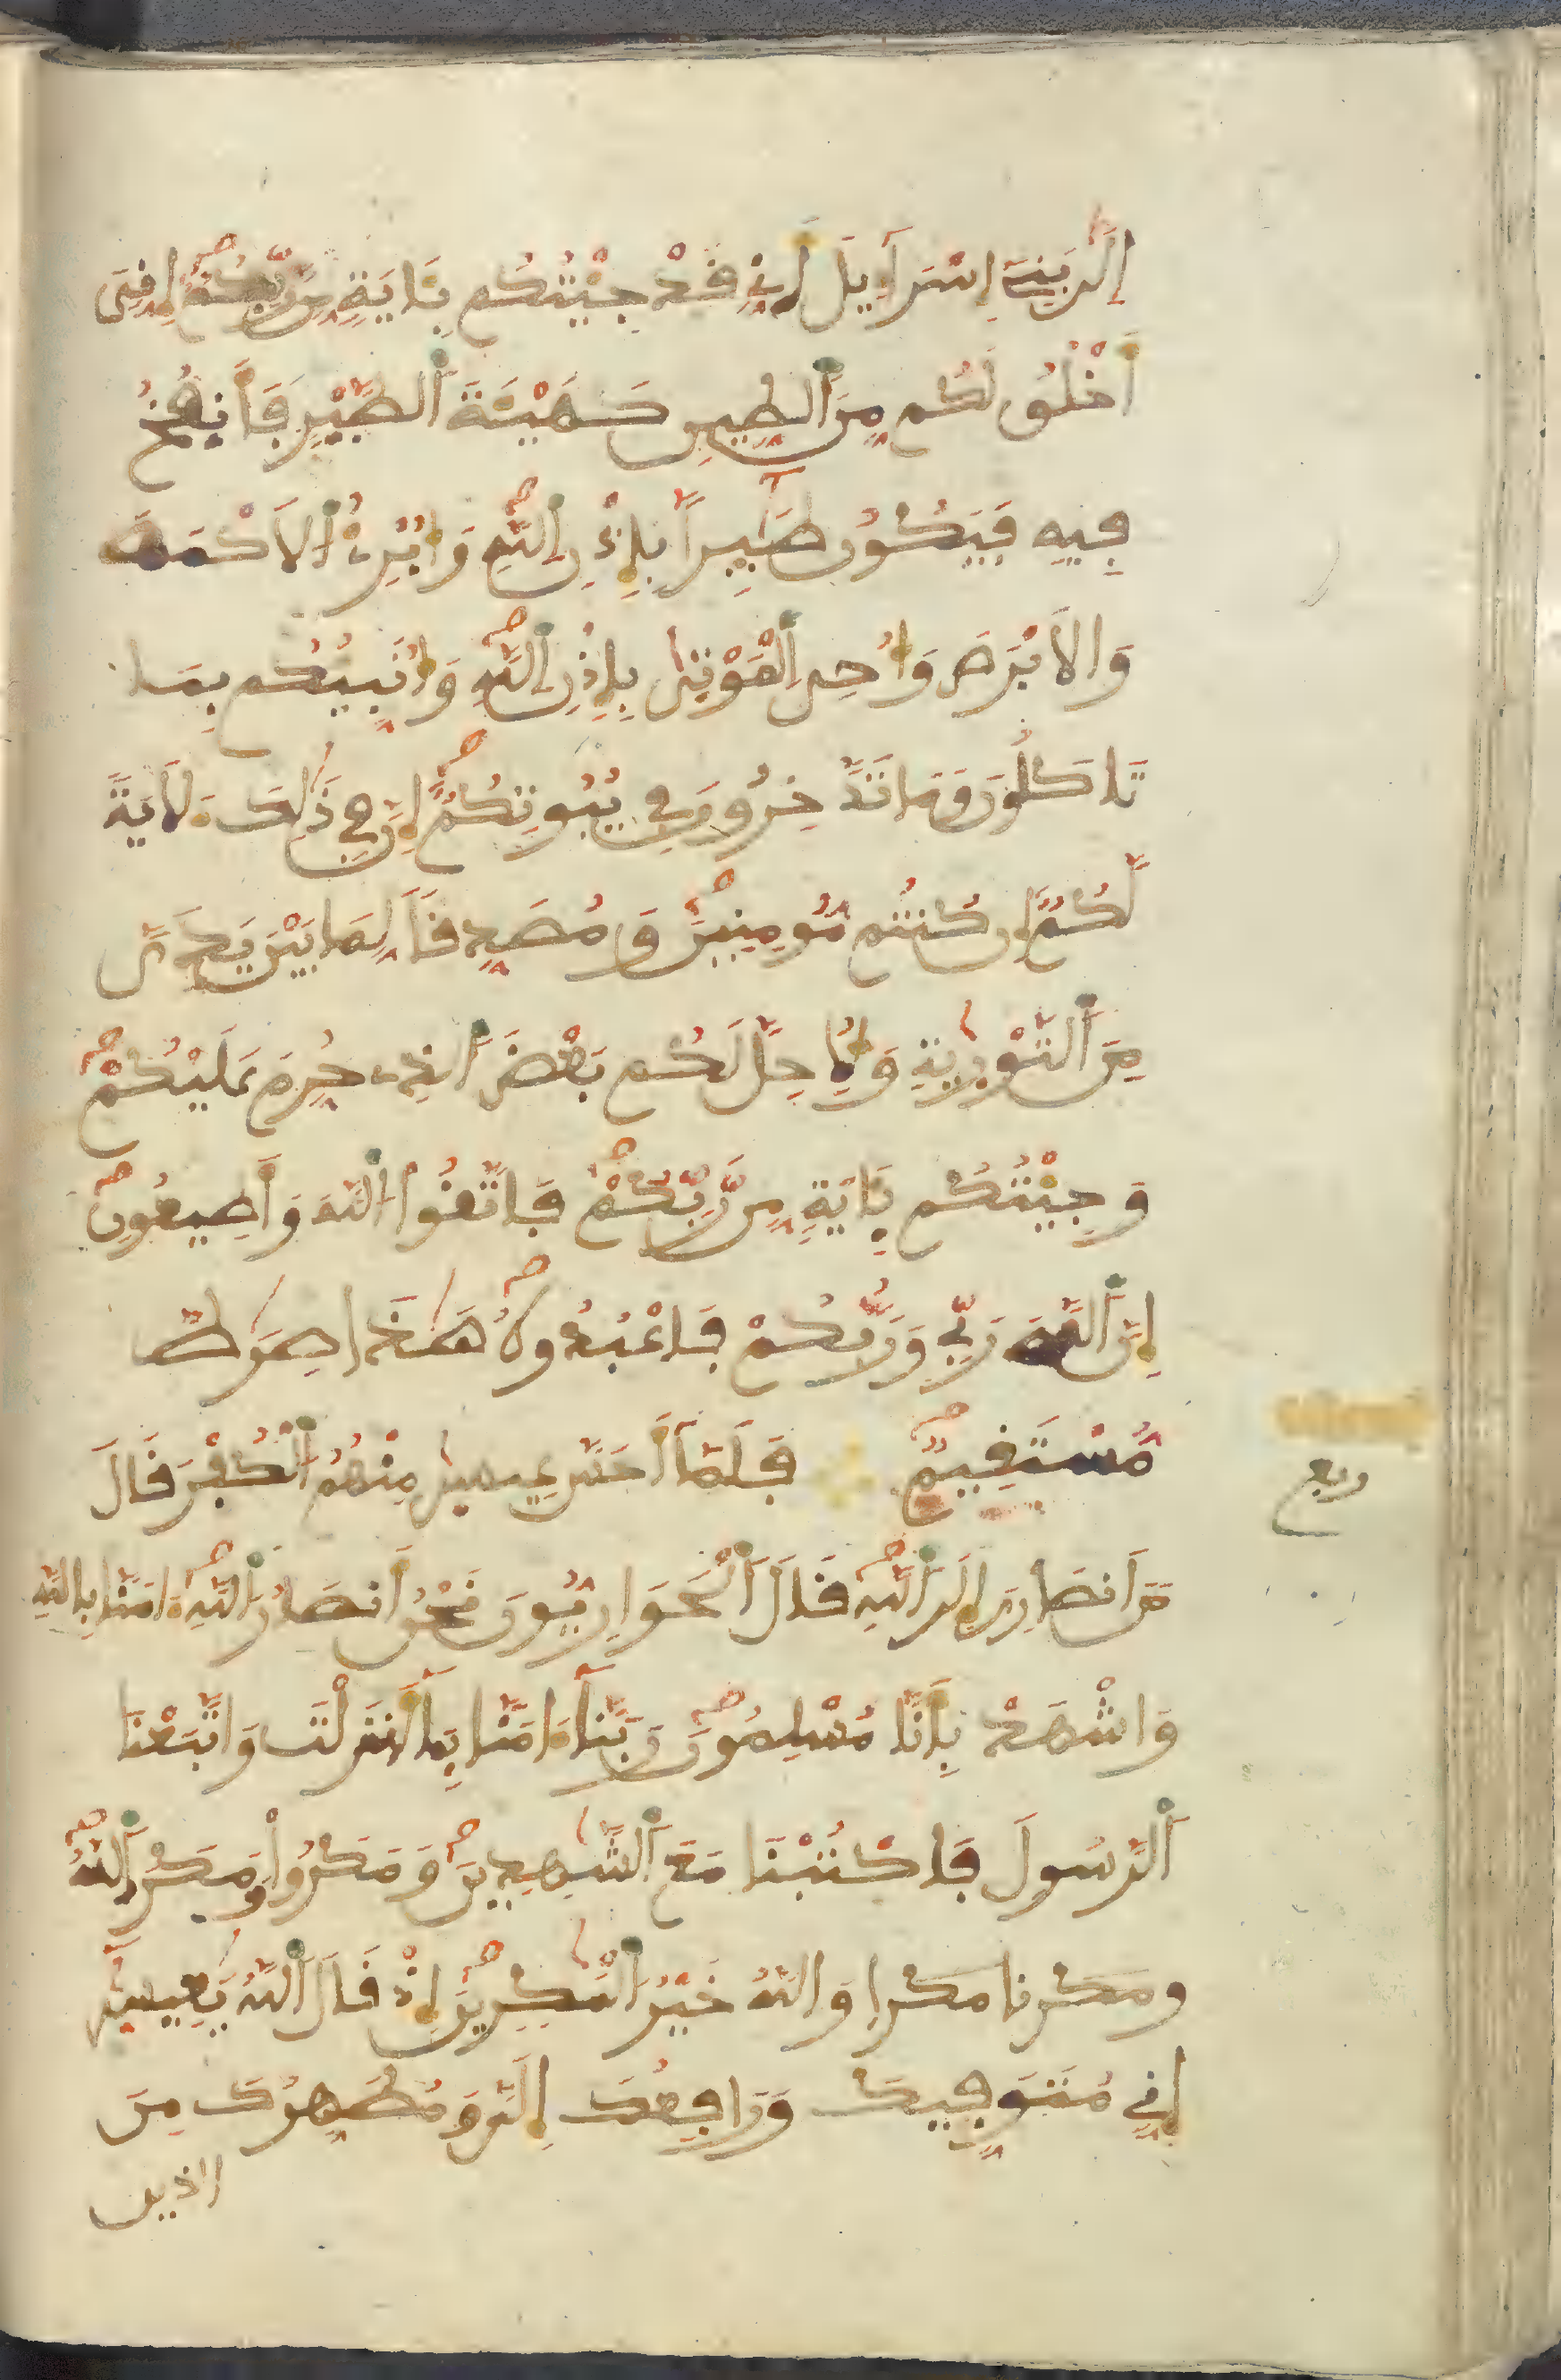 إِلَىٰ بَنِےٓ إِسْرَآءِيلَ أَنِّے قَدْ جِيْتُكُم بِـَٔايَةٍ مِّن رَّبِّكُمْ إِنِّيَ
أَخْلُقُ لَكُم مِّنَ ٱلطِّينِ كَهَيْـَٔةِ ٱلطَّيْرِ فَأَنفُخُ
فِيهِ فَيَكُونُ طَٰٓئِراً بِإِذْنِ ٱللَّهِ وَأُبْرِئُ ٱلَاكْمَهَ
وَالَابْرَصَ وَأُحْىِ ٱلْمَوْتَىٰ بِإِذْنِ ٱللَّهِ وَأُنَبِّيُكُم بِمَا
تَاكُلُونَ وَمَا تَدَّخِرُونَ فِي بُيُوتِكُمْ إِنَّ فِي ذَٰلِكَ ءَلَايَةً
لَّكُمْ إِن كُنتُم مُّومِنِينَ وَمُصَدِّقاً لِّمَا بَيْنَ يَدَيَّ
مِنَ ٱلتَّوْرَيٰةِ وَلِأُحِلَّ لَكُم بَعْضَ ٱلذِے حُرِّمَ عَلَيْكُمْ
وَجِيْتُكُم بِـَٔايَةٍ مِّن رَّبِّكُمْ فَاتَّقُوا ٱللَّهَ وَأَطِيعُونِ
إِنَّ ٱللَّهَ رَبِّي وَرَبُّكُمْ فَاعْبُدُوهُ هَٰذَا صِرَٰطٌ
مُّسْتَقِيمٌ فَلَمَّآ أَحَسَّ عِيسَىٰ مِنْهُمُ ٱلْكُفْرَ قَالَ
مَنَ أَنصَارِيَ إِلَى ٱللَّهِ قَالَ ٱلْحَوَارِيُّونَ نَحْنُ أَنصَارُ ٱللَّهِ ءَامَنَّا بِاللَّهِ
وَاشْهَدْ بِأَنَّا مُسْلِمُونَ رَبَّنَآ ءَامَنَّا بِمَآ أَنزَلْتَ وَاتَّبَعْنَا
ٱلرَّسُولَ فَاكْتُبْنَا مَعَ ٱلشَّٰهِدِينَ وَمَكَرُوا وَمَكَرَ ٱللَّهُ
ومكرنا مكرا وَاللَّهُ خَيْرُ ٱلْمَٰكِرِينَ إِذْ قَالَ ٱللَّهُ يَٰعِيسَىٰٓ
إِنِّي مُتَوَفِّيكَ وَرَافِعُكَ إِلَيَّ وَمُطَهِّرُكَ مِنَ
الذين
ربع